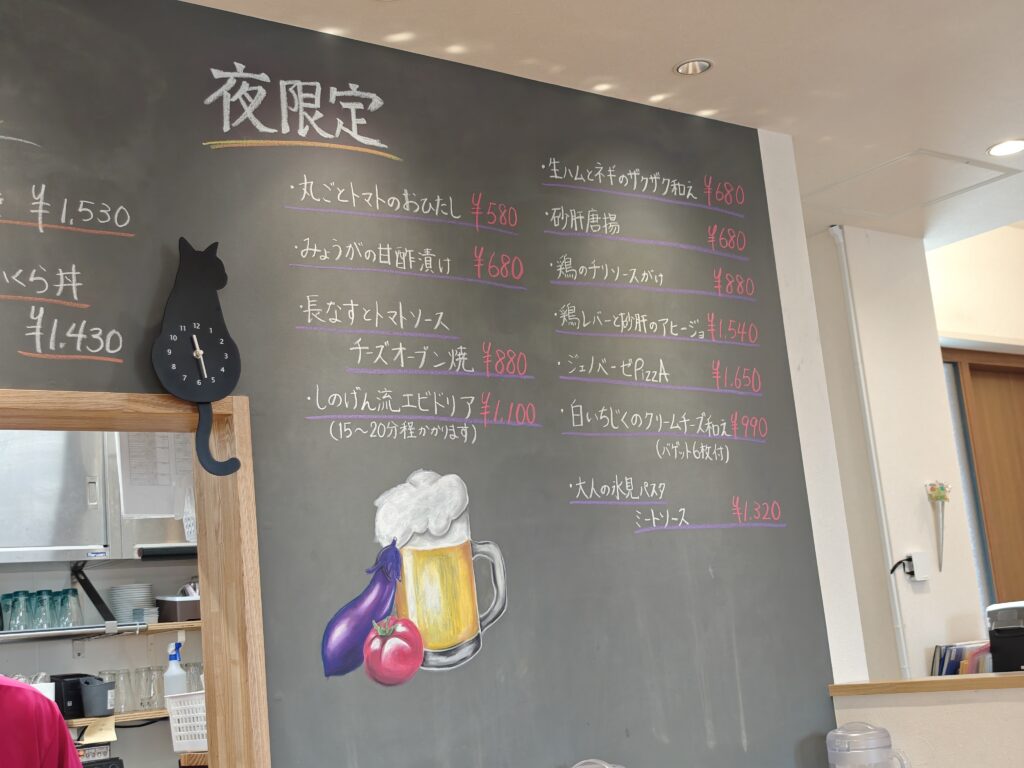 夜限定
¥1.530
くら丼
¥1.430
・丸ごとトマトのおひたし ¥580
・みょうがの甘酢漬け ¥680
・長なすとトマトソース
チーズオーブン焼 ¥880
・しのげん流エビドリア ¥1.100
(15～20分程かかります)
・生ハムとネギのザクザク和え ¥680
・砂肝唐揚 ¥680
・鶏のチリソースがけ ¥880
・鶏レバーと砂肝のアヒージョ ¥1.540
・ジェノベーゼPizzA ¥1.650
・白いちじくのクリームチーズ和え ¥990
(バゲット6枚付)
・大人の氷見パスタ
ミートソース ¥1.320
11 12 1
10 2
9 3
8 4
7 6 5